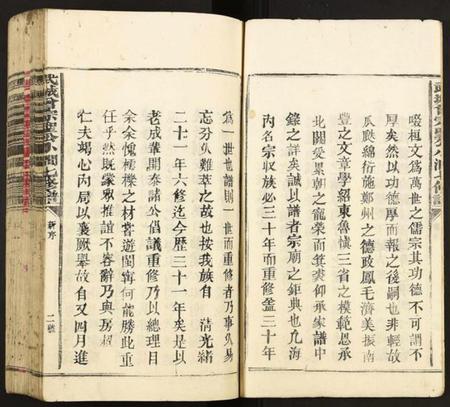 啜桓文為萬世之儒宗其功德不可謂不
厚矣然以功德厚而報之後嗣也非輕故
瓜瓞綿衍施鄭州之德政鳳毛濟美振南
豐之文章學紹東魯懷三省之模範思承
北闕受累朝之寵榮而箕裘仰承家譜中
錄之詳矣誠以譜者宗廟之鉅典也凡海
內名宗收族必三十年而重修蓋三十年
為一世也譜則一世而重修者乃事久易
忘分久難萃之故也按我族自 清光緒
二十一年六修迄今歷三十一年矣是以
老成華開泰諸公倡議重修乃以總理目
余余愧樗櫟之材薦遊閩甯何能勝此重
任乎然既蒙眾推誼不容辭乃與房
仁夫竭心內局以襄厥舉故自又四月進
武城曾宗聖公 七修譜 新序 二號